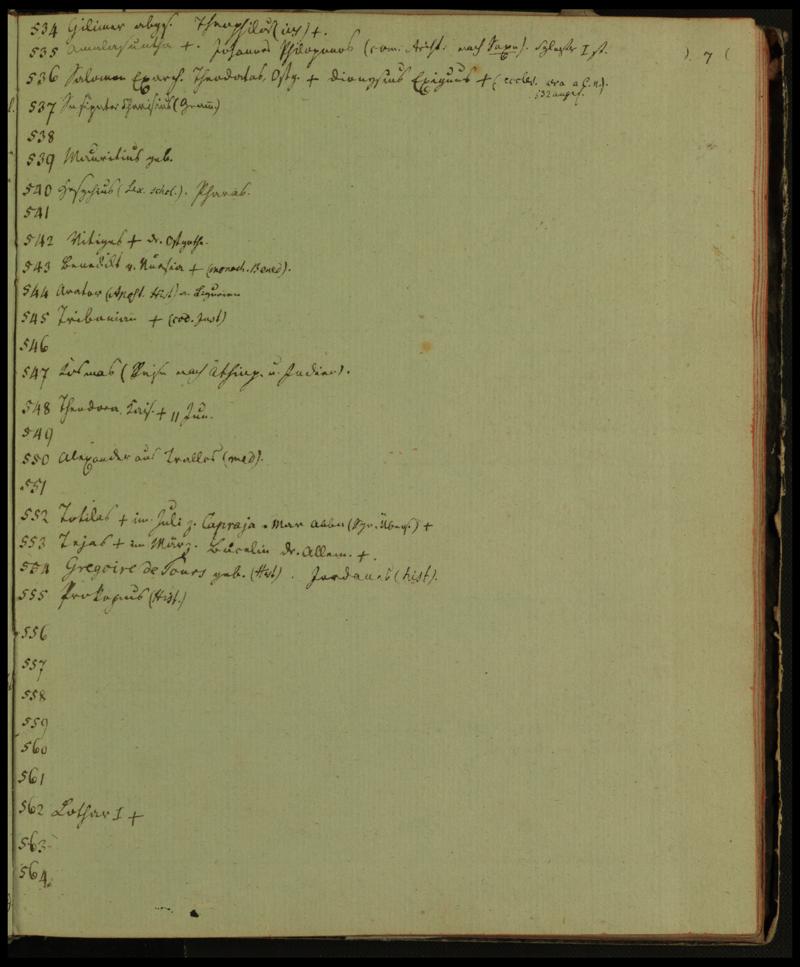 534 Gilimer abges. Theophilus (ius) +.
535 Amalasuntha +. Johannes Philoponos (com. Aristt. nach Saxu). I st.
) 7 (
536 Salomon Exarch. Theodatos. Ostg. + Dionysius Exiguus + (eccles. era a C. n.).
532 angef.
537 Sosipater Charisius (Gram)
538
539 Mauritius geb.
540 Hesychius (Lex. schol.). Pharas.
541
542 Vitiges + dr. Ostgothe.
543 Benedikt v. Nursia + (monach. Bened).
544 Arator (Apost. Hist) a. Ligurien
545 Tribonian + (cod. Just)
546
547 Kosmas (Reise nach Äthiop. u. Indien).
548 Theodora, Kais. + 11 Jun.
549
550 Alexander aus Tralles (med).
551
552 Totilas + im Juli z. Capraja. Mar Abba (Syr. Übers.) +
553 Tejas + im März. Bucelin dr. Allem. +.
554 Gregoire de Tours geb. (Hist). Jordanes (hist).
555 Prokopius (Hist.)
556
557
558
559
560
561
562 Lothar I +
563
564